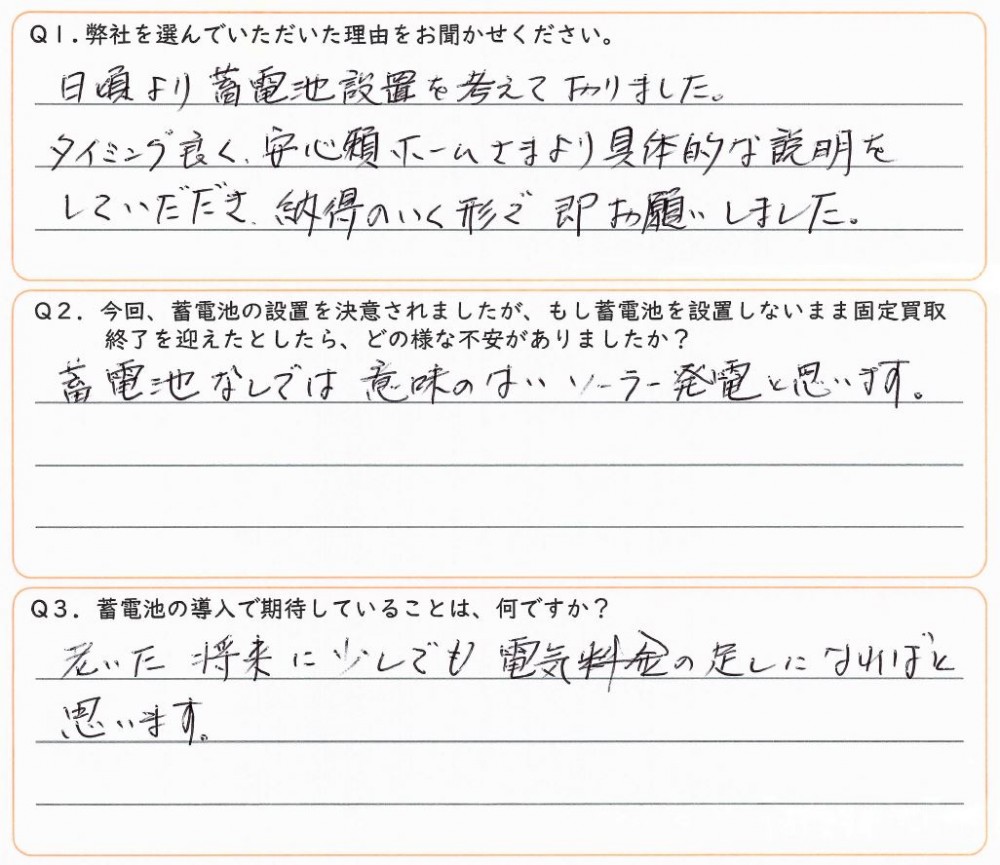 Q1.弊社を選んでいただいた理由をお聞かせください。
日頃より蓄電池設置を考えておりました。
タイミング良く、安心頼ホームさまより具体的な説明を
していだだき、納得のいく形で即お願いしました。
Q2. 今回、蓄電池の設置を決意されましたが、もし蓄電池を設置しないまま固定買取
終了を迎えたとしたら、どの様な不安がありましたか？
蓄電池なしでは意味のないソーラー発電と思います。
Q3. 蓄電池の導入で期待していることは、何ですか？
老いた将来に少しでも電気料金の足しになればと
思います。